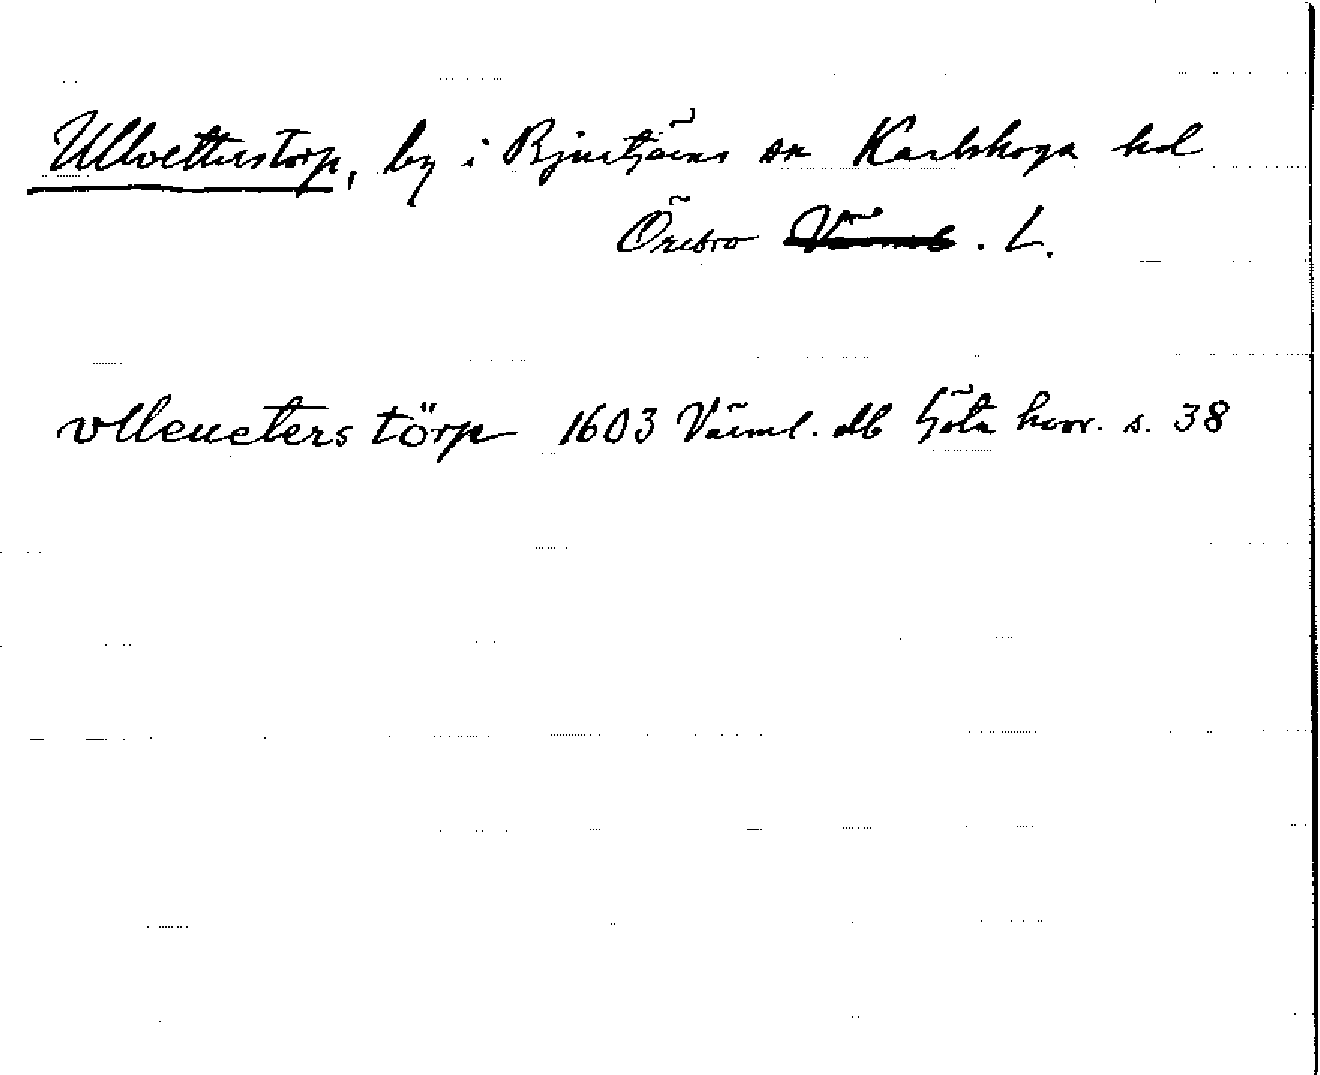 Ullvetterstorp, by i Bjurtjärns sn Karlskoga hd
Örebro Värml. L.
vlleueters törp 1603 Värml. db Göta hovr. s. 38